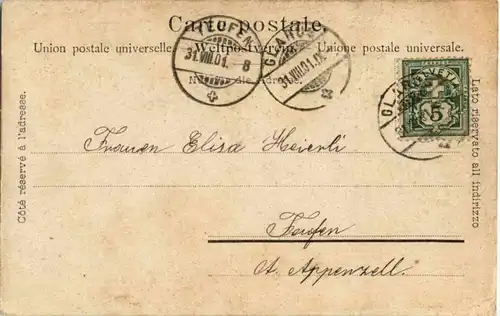 Carte postale.
Union postale universelle. Weltpostverein. Unione postale universale.
TEUFEN
31.VIII.01. 8
GLARUS
31.VIII.01.
Nur für die Adresse.
GLARUS
5
Côté réservé à l'adresse.
Lato riservato all indirizzo
Frauen Elisa Heierli
Teufen
Ct. Appenzell.